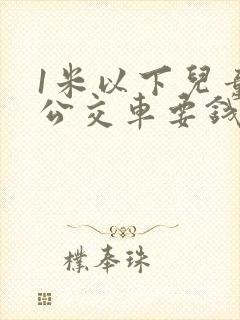 1米以下兒童
公交車要錢
樸奉珠